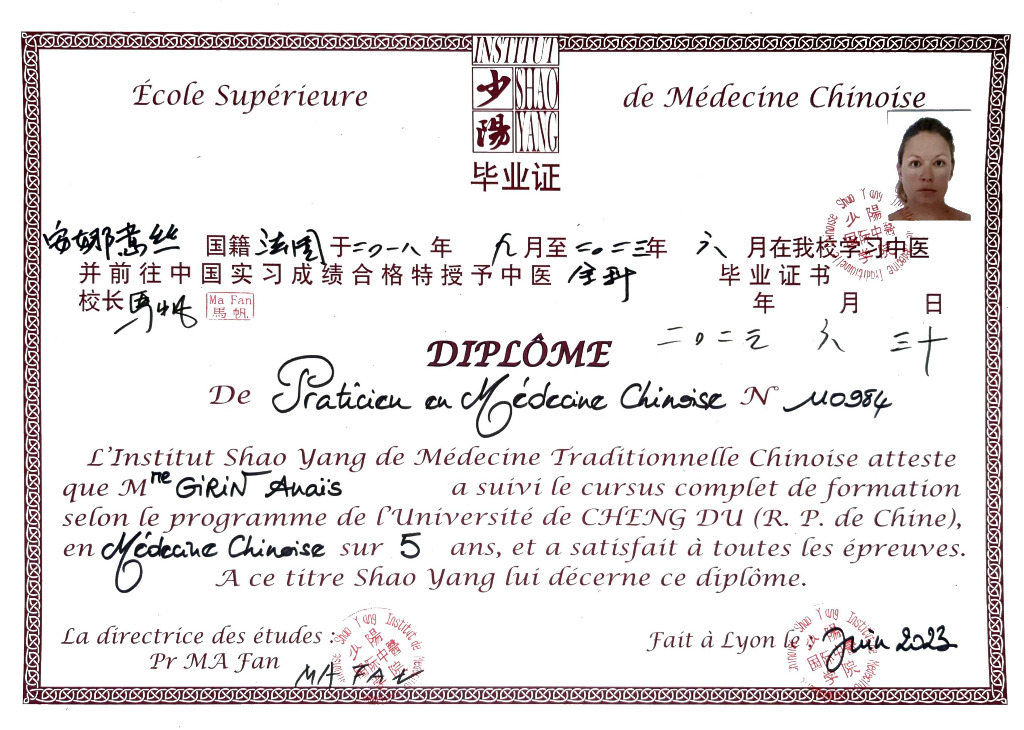 INSTITUT
少 SHAO
陽 YANG
École Supérieure de Médecine Chinoise
毕业证
安娜 丝 国籍 法国 于二〇一八年 九月至二〇二三年 六 月在我校学习中医
并前往中国实习成绩合格特授予中医 全科 毕业证书
校长 馬帆 Ma Fan 馬帆 年 月 日
二〇二三 六 三十
DIPLÔME
De Praticien en Médecine Chinoise N° 110984
L'Institut Shao Yang de Médecine Traditionnelle Chinoise atteste
que Mme GIRIN Anaïs a suivi le cursus complet de formation
selon le programme de l'Université de CHENG DU (R. P. de Chine),
en Médecine Chinoise sur 5 ans, et a satisfait à toutes les épreuves.
A ce titre Shao Yang lui décerne ce diplôme.
La directrice des études :
Pr MA Fan
MA FAN
Fait à Lyon le : Juin 2023